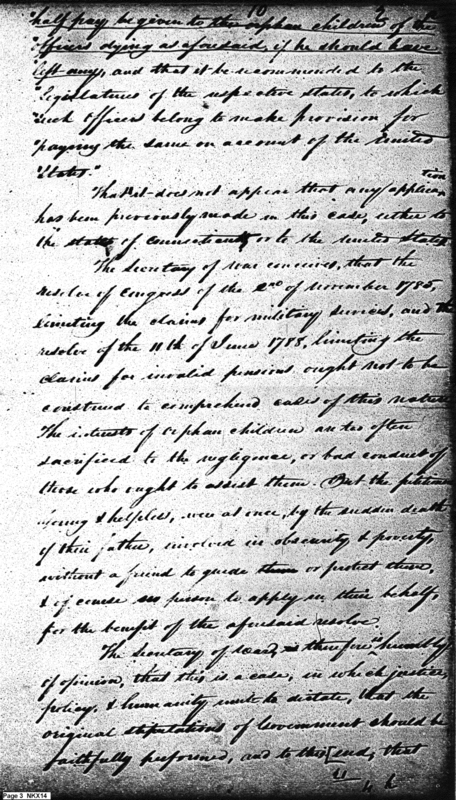 10
"half pay be given to the orphan children of the
"Officers dying as aforesaid, if he should have
"left any, and that it be recommended to the
"Legislatures of the respective states, to which
"such Officers belong to make provision for
"paying the same on account of the United
"States."
That it does not appear that any application
has been previously made in this case, either to
the state of Connecticut, or to the United States
The Secretary of war conceives, that the
resolve of Congress of the 2nd of november 1785,
Limiting the claims for military services, and the
resolve of the 11th of June 1788, limiting the
claims for invalid pensions ought not to be
construed to comprehend cases of this nature
The interests of orphan children are too often
sacrificed to the negligence, or bad conduct of
those who ought to assist them. But the petitioners
young & helpless, were at once, by the sudden death
of their father, involved in obscurity & poverty,
without a friend to guide them or protect them,
& of course no person to apply in their behalf,
for the benefit of the aforesaid resolve.
The Secretary of war, is therefore humbly
of opinion, that this is a case, in which justice,
policy, & humanity unite to dictate, that the
original stipulations of Government should be
faithfully performed, and to this end, that
11
Page 3 NKX14